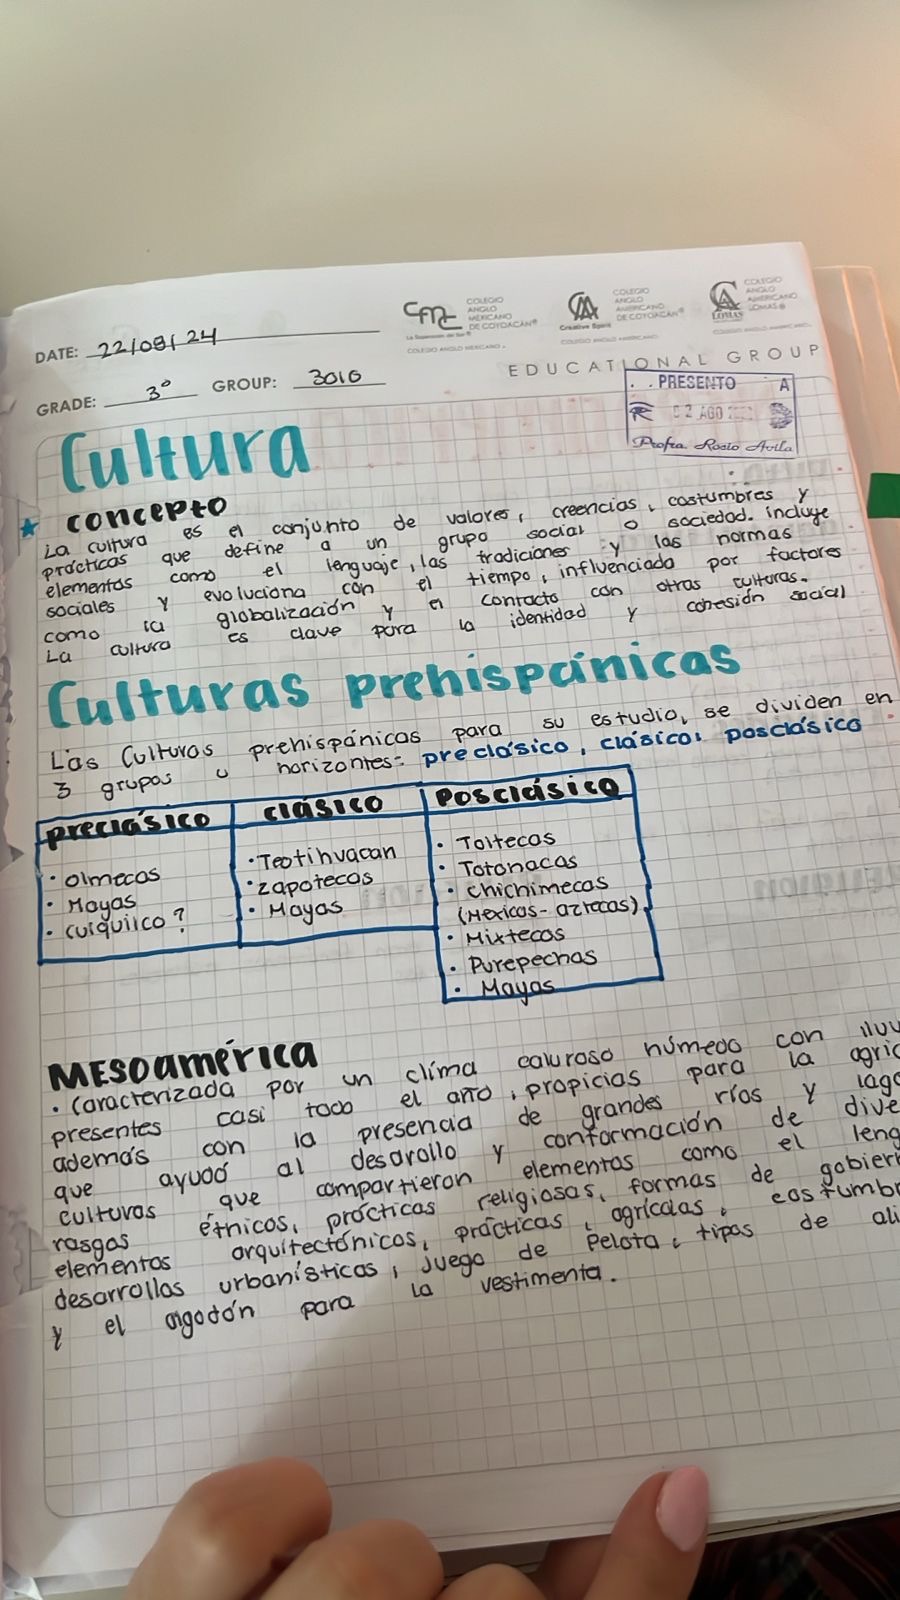 COLEGIO
ANGLO
MEXICANO
DE COYOACÁN®
COLEGIO ANGLO MEXICANO
COLEGIO
ANGLO
AMERICANO
DE COYOACÁN®
Creative Spirit
COLEGIO ANGLO AMERICANO
COLEGIO
ANGLO
AMERICANO
LOMAS®
LOMAS
EDUCATIONAL GROUP
DATE: 22/08/24
GRADE: 3° GROUP: 3010
PRESENTO A
02 AGO
Profra. Rosio Avila
Cultura
concepto
La cultura es el conjunto de valores, creencias, costumbres y
prácticas que define a un grupo social o sociedad. incluye
elementos como el lenguaje, las tradiciones y las normas
sociales y evoluciona con el tiempo, influenciada por factores
como la globalización y el contacto con otras culturas.
La cultura es clave para la identidad y cohesión social
Culturas prehispánicas
Las Culturas prehispánicas para su estudio, se dividen en
3 grupos u horizontes: preclásico, clásico, posclásico
preclásico
• olmecas
• Mayas
• cuiquilco?
clásico
• Teotihuacan
• zapotecas
• Mayas
Posclásico
• Toltecas
• Totonacas
• chichimecas
(Mexicas-aztecas)
• Mixtecos
• Purepechas
• Mayas
MESOamérica
• Caracterizada por un clíma caluroso húmedo con
presentes casi todo el año, propicias para la agric
además con la presencia de grandes ríos y lago
que ayudó al desarollo y conformación de dive
culturas que compartieron elementos como el leng
rasgas étnicos, prácticas religiosas, formas de gobier
elementos arquitectónicos, prácticas, agrícolas, costumbr
desarrollos urbanísticas, Juego de Pelota, tipos de ali
y el algodón para la vestimenta.